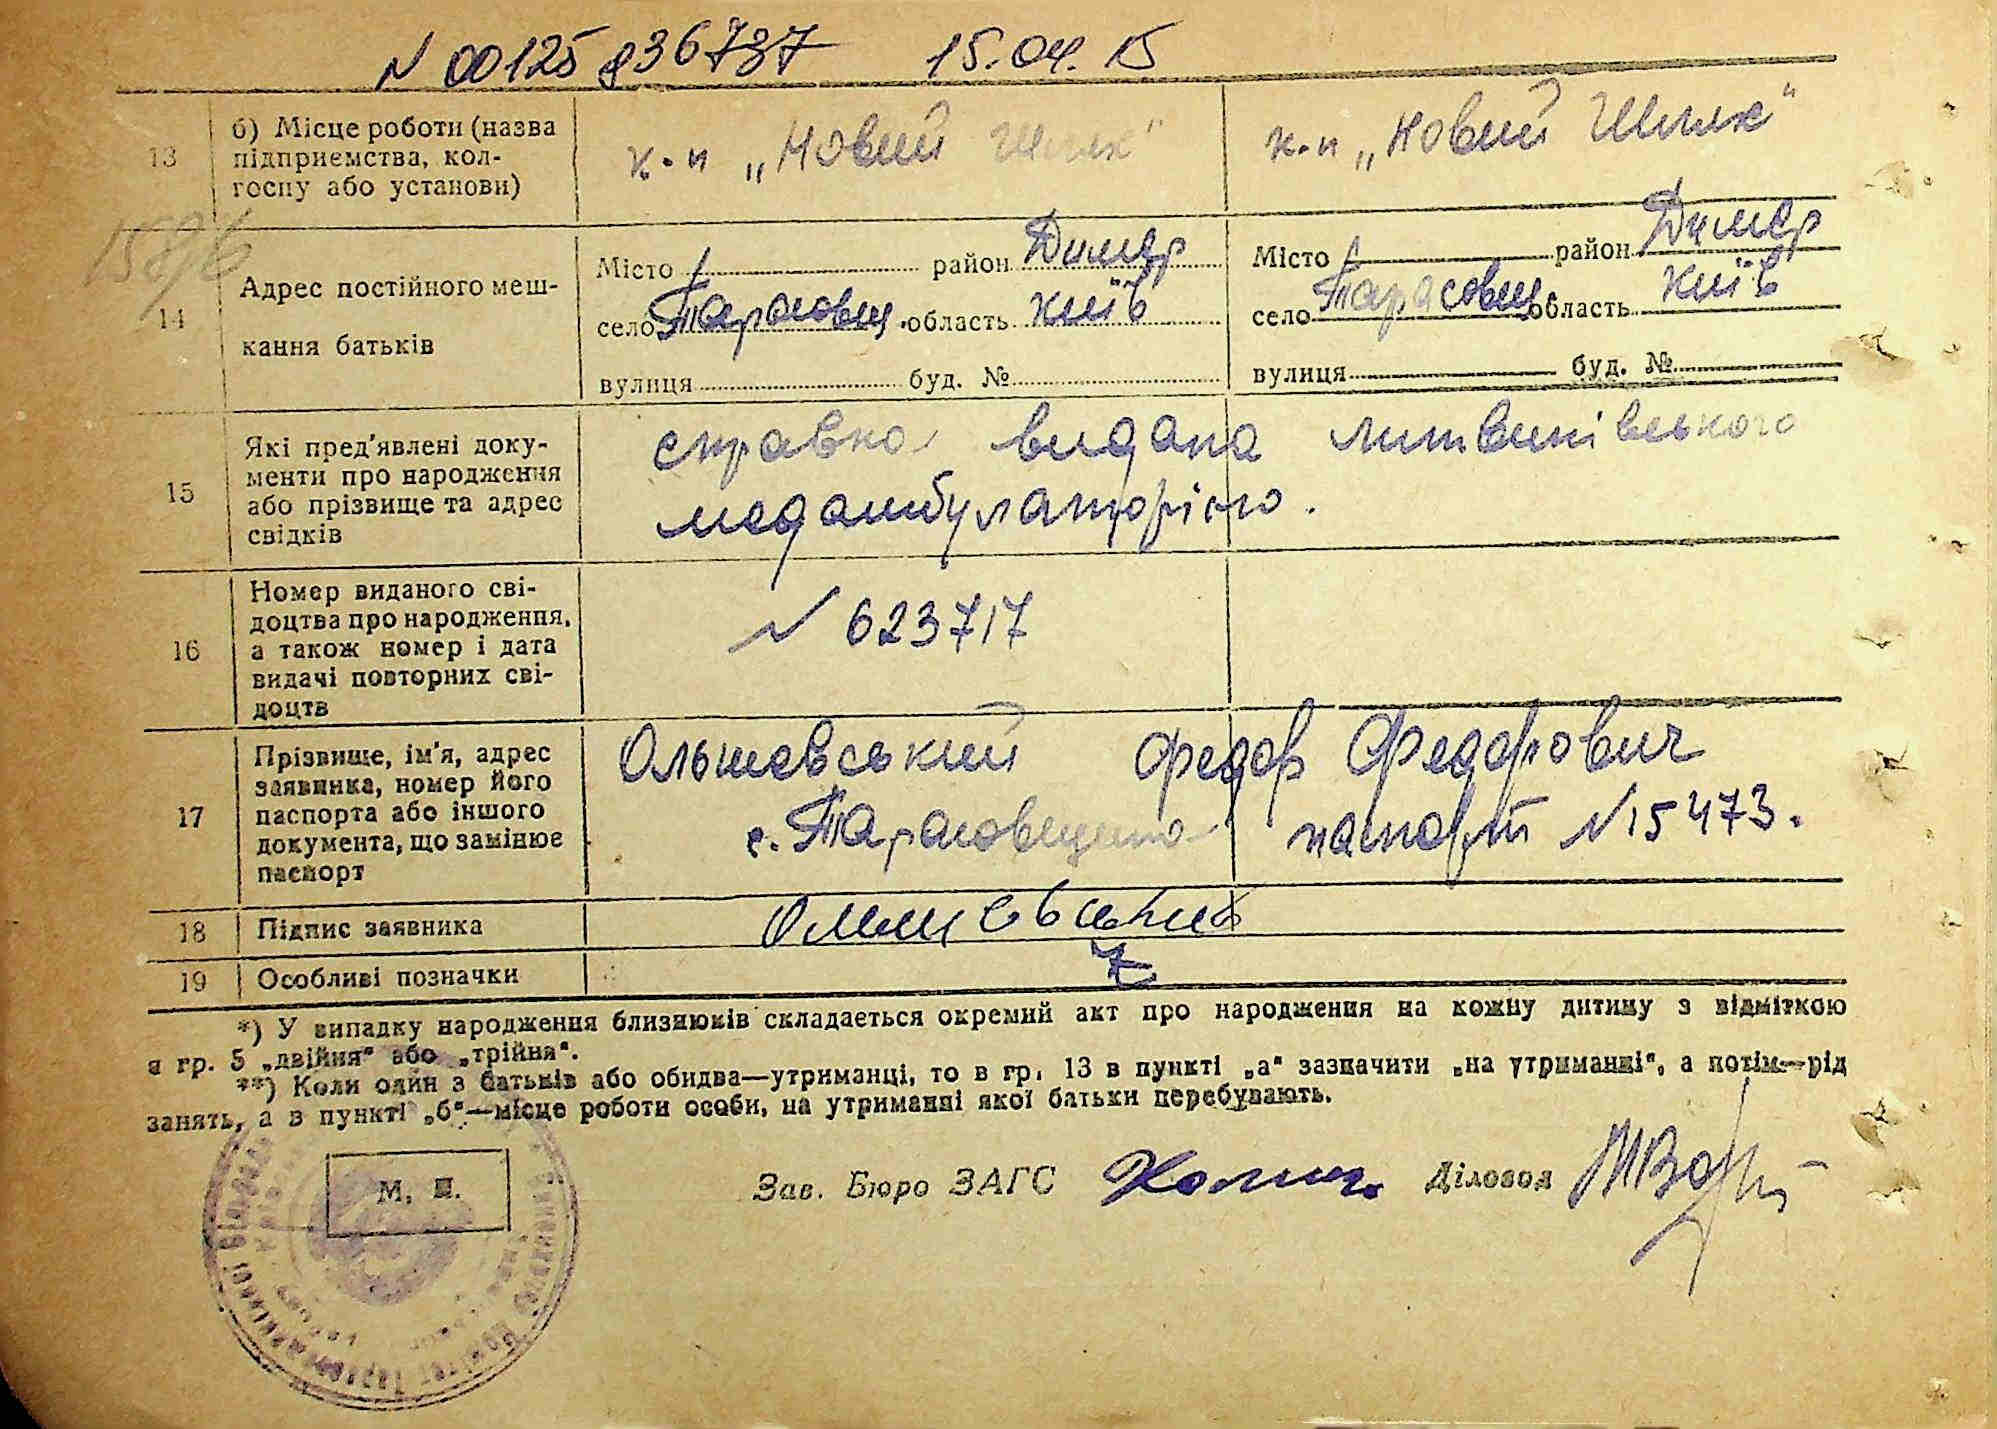 N 00125836737 15.04.15
13
б) Місце роботи (назва
підприємства, кол-
госпу або установи)
к-п „Новий Шлях“
к-п „Новий Шлях“
158/6
14
Адрес постійного меш-
кання батьків
Місто район Димер
село Тарасовщ. область Київ
вулиця буд. №
Місто район Димер
село Тарасовщ. область Київ
вулиця буд. №
15
Які пред'явлені доку-
менти про народження
або прізвище та адрес
свідків
справка видана литвинівського
медамбулаторією.
16
Номер виданого сві-
доцтва про народження,
а також номер і дата
видачі повторних сві-
доцтв
N 623717
17
Прізвище, ім'я, адрес
заявника, номер його
паспорта або іншого
документа, що замінює
паспорт
Ольшевський Федор Федорович
с. Тарасовщина паспорт N 15473.
18
Підпис заявника
19
Особливі позначки
*) У випадку народження близнюків складається окремий акт про народження на кожну дитину з відміткою
я гр. 5 „двійня“ або „трійня“.
**) Коли один з батьків або обидва—утриманці, то в гр. 13 в пункті „а“ зазначити „на утриманні“, а потім—рід
занять, а в пункті „б“—місце роботи особи, на утриманні якої батьки перебувають.
М. П.
Зав. Бюро ЗАГС
Діловод